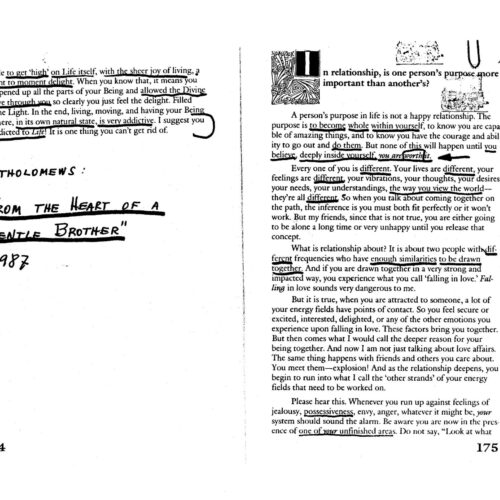 to get 'high' on Life itself, with the sheer joy of living, a
to moment delight. When you know that, it means you
pened up all the parts of your Being and allowed the Divine
through you so clearly you just feel the delight. Filled
he Light. In the end, living, moving, and having your Being
here, in its own natural state, is very addictive. I suggest you
dicted to Life! It is one thing you can't get rid of.
THOLOMEWS :
ROM THE HEART OF A
ENTLE BROTHER"
987
4
In relationship, is one person's purpose more
important than another's?
A person's purpose in life is not a happy relationship. The
purpose is to become whole within yourself, to know you are capa
ble of amazing things, and to know you have the courage and abil
ity to go out and do them. But none of this will happen until you
believe, deeply inside yourself, you are worth it.
Every one of you is different. Your lives are different, your
feelings are different, your vibrations, your thoughts, your desires
your needs, your understandings, the way you view the world—
they're all different. So when you talk about coming together on
the path, the inference is you must both fit perfectly or it won't
work. But my friends, since that is not true, you are either going
to be alone a long time or very unhappy until you release that
concept.
What is relationship about? It is about two people with dif-
ferent frequencies who have enough similarities to be drawn
together. And if you are drawn together in a very strong and
impacted way, you experience what you call 'falling in love.' Fal-
ling in love sounds very dangerous to me.
But it is true, when you are attracted to someone, a lot of
your energy fields have points of contact. So you feel secure or
excited, interested, delighted, or any of the other emotions you
experience upon falling in love. These factors bring you together.
But then comes what I would call the deeper reason for your
being together. And now I am not just talking about love affairs.
The same thing happens with friends and others you care about.
You meet them—explosion! And as the relationship deepens, you
begin to run into what I call the 'other strands' of your energy
fields that need to be worked on.
Please hear this. Whenever you run up against feelings of
jealousy, possessiveness, envy, anger, whatever it might be, your
system should sound the alarm. Be aware you are now in the pres-
ence of one of your unfinished areas. Do not say, "Look at what
175